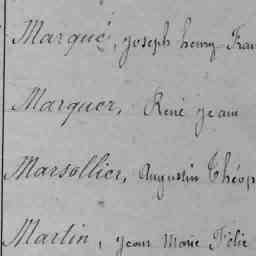 Marqué, Joseph henry
Marquer, René Jean
Marsollier, Augustin Théop
Martin, Jean Marie Félic